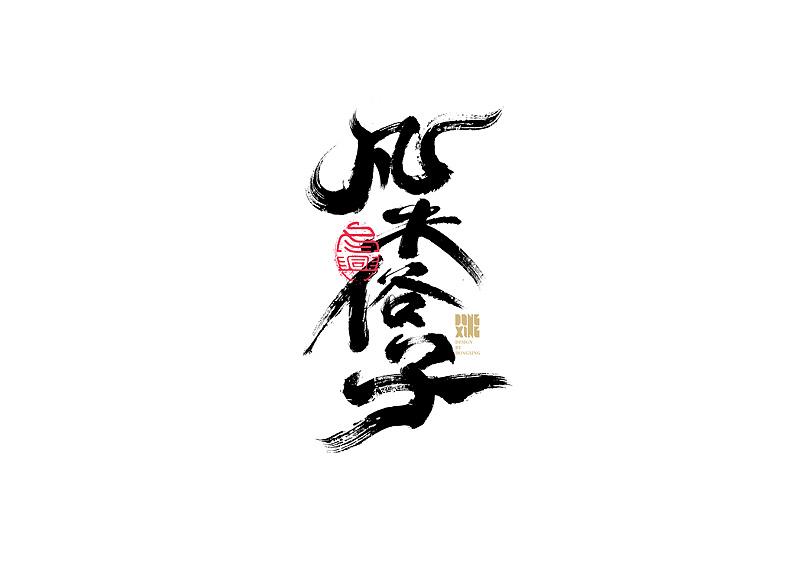 凡夫俗子
DONG
XING
DESIGN
BY
DONGXING